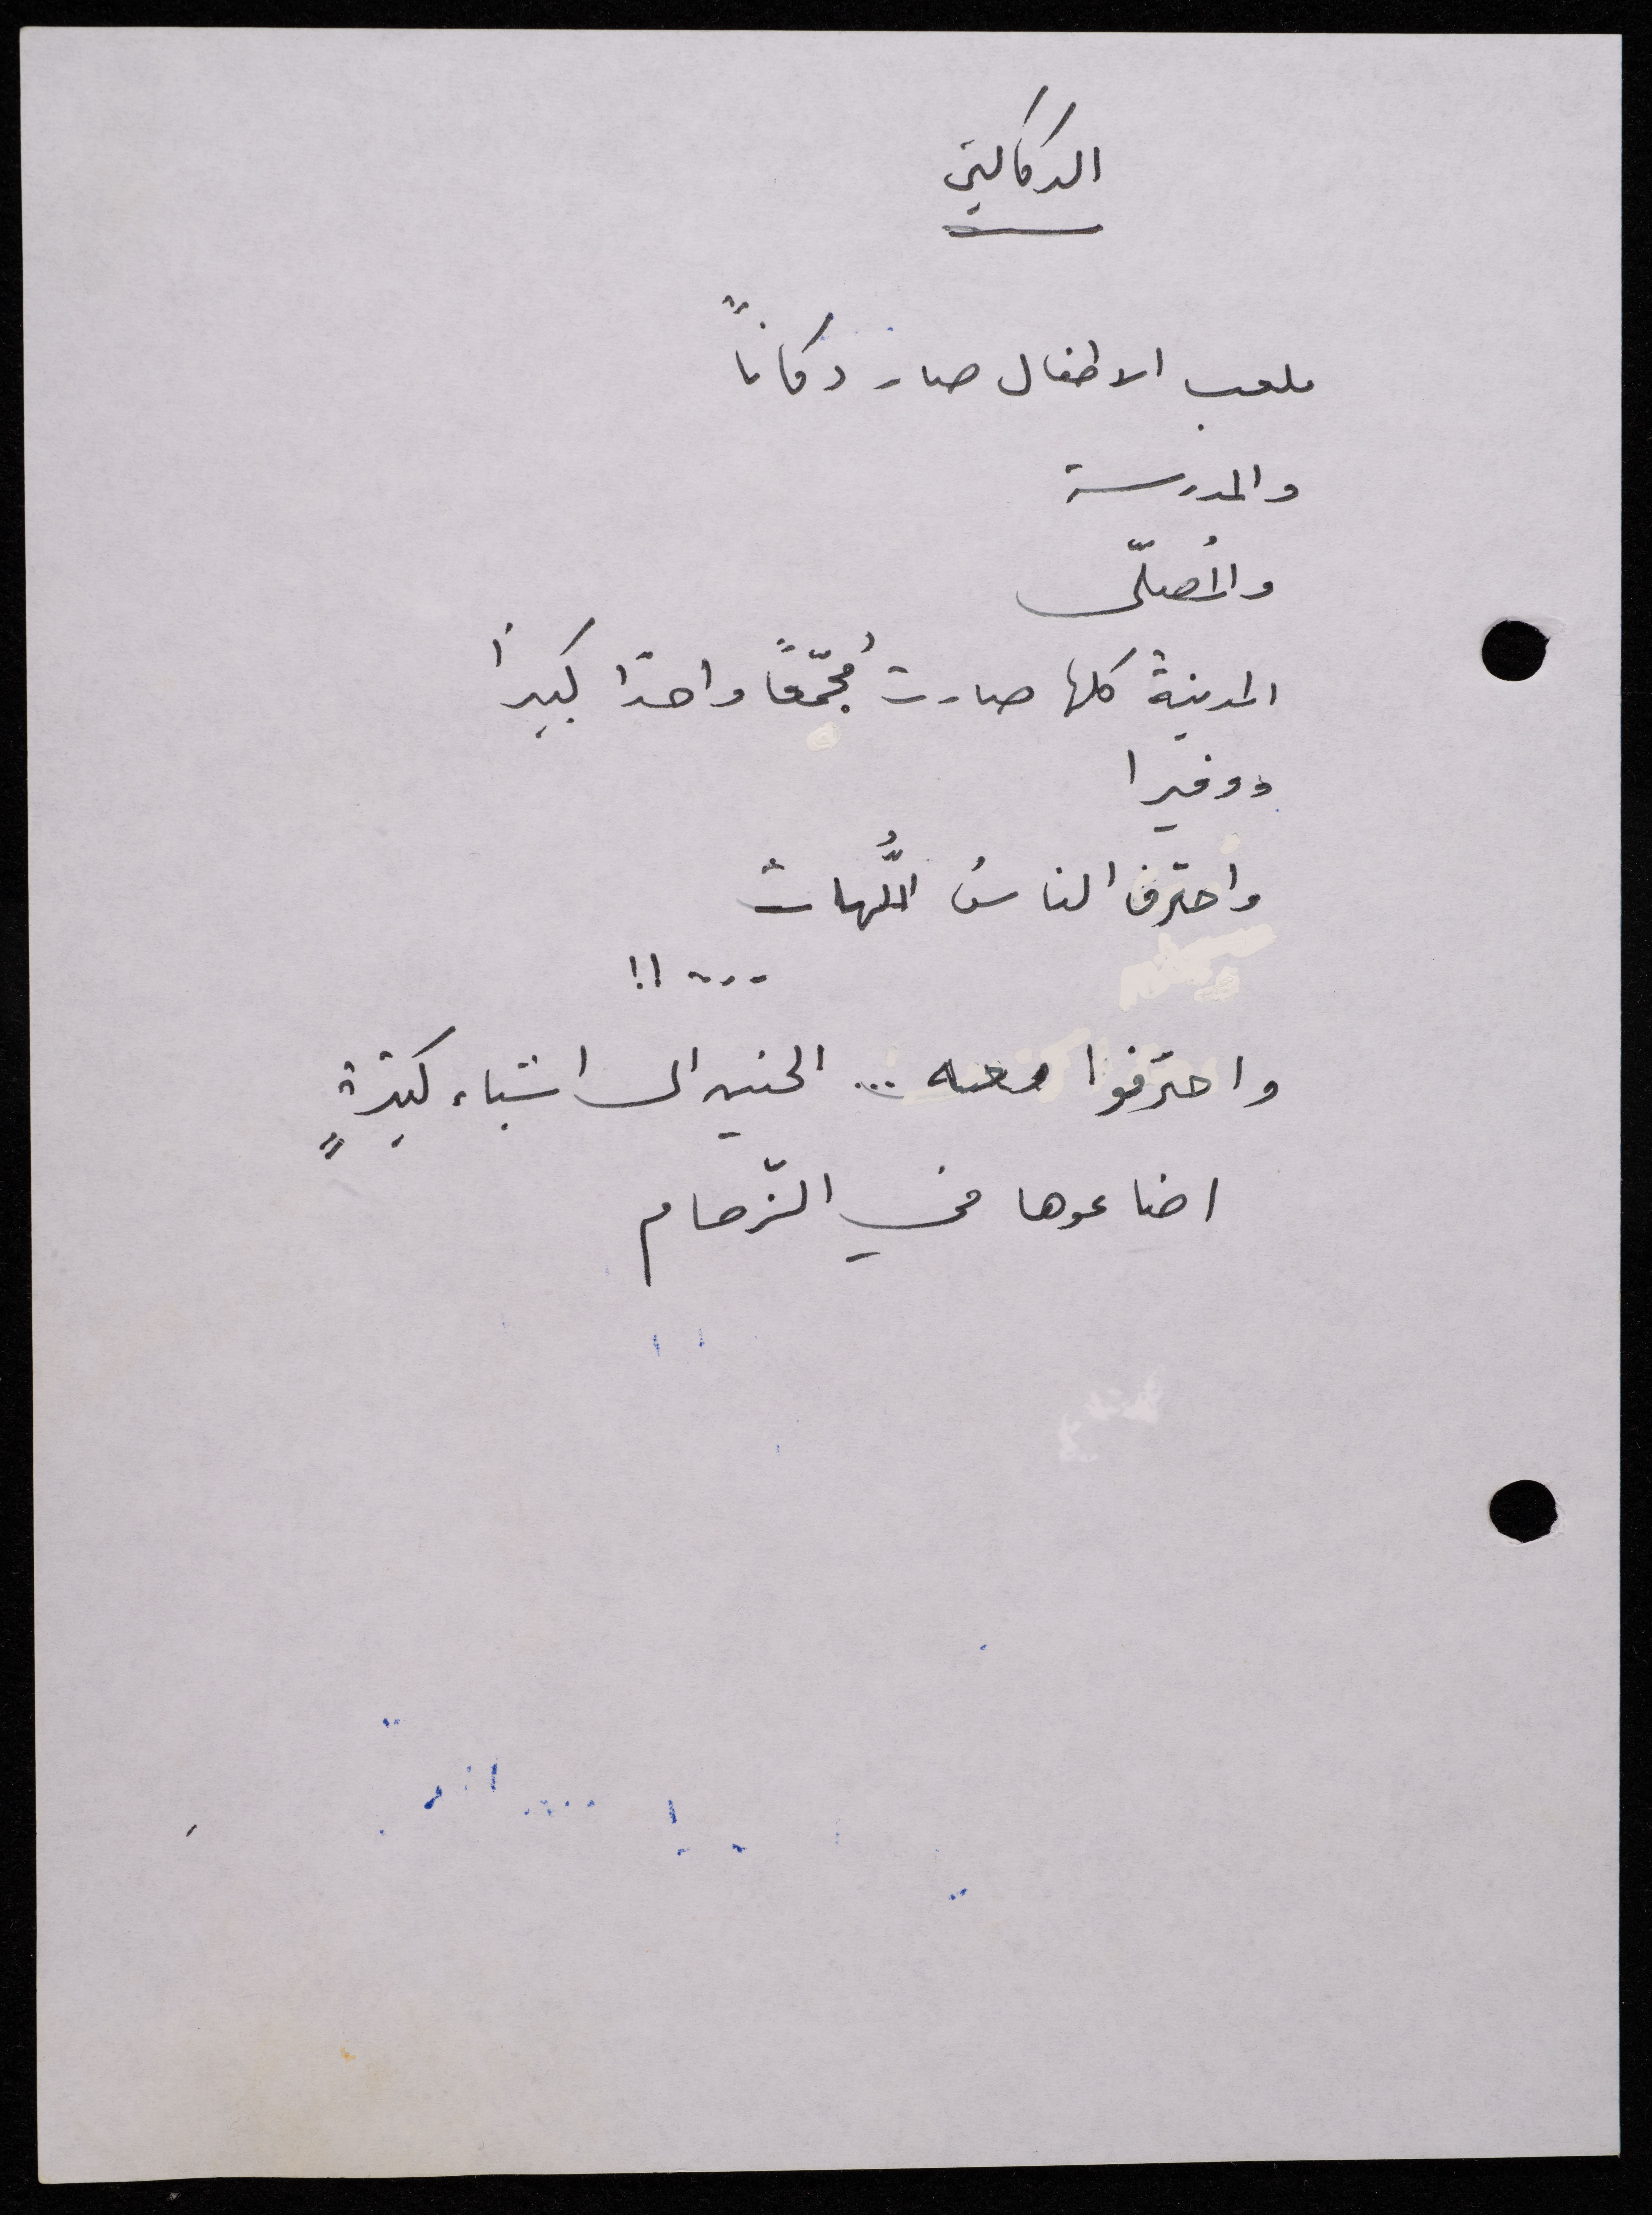 الدكاكين
ملعب الاطفال صار دكاناً
والمدرسة
والمُصلّى
المدينةُ كلها صارت مُجمّعًا واحدًا كبيرًا
ووفيرا
واحترف الناسُ اللُّهاثَ
....!!
واحترفوا معه... الحنين الى اشياء كثيرةٍ
اضاعوها في الزّحام